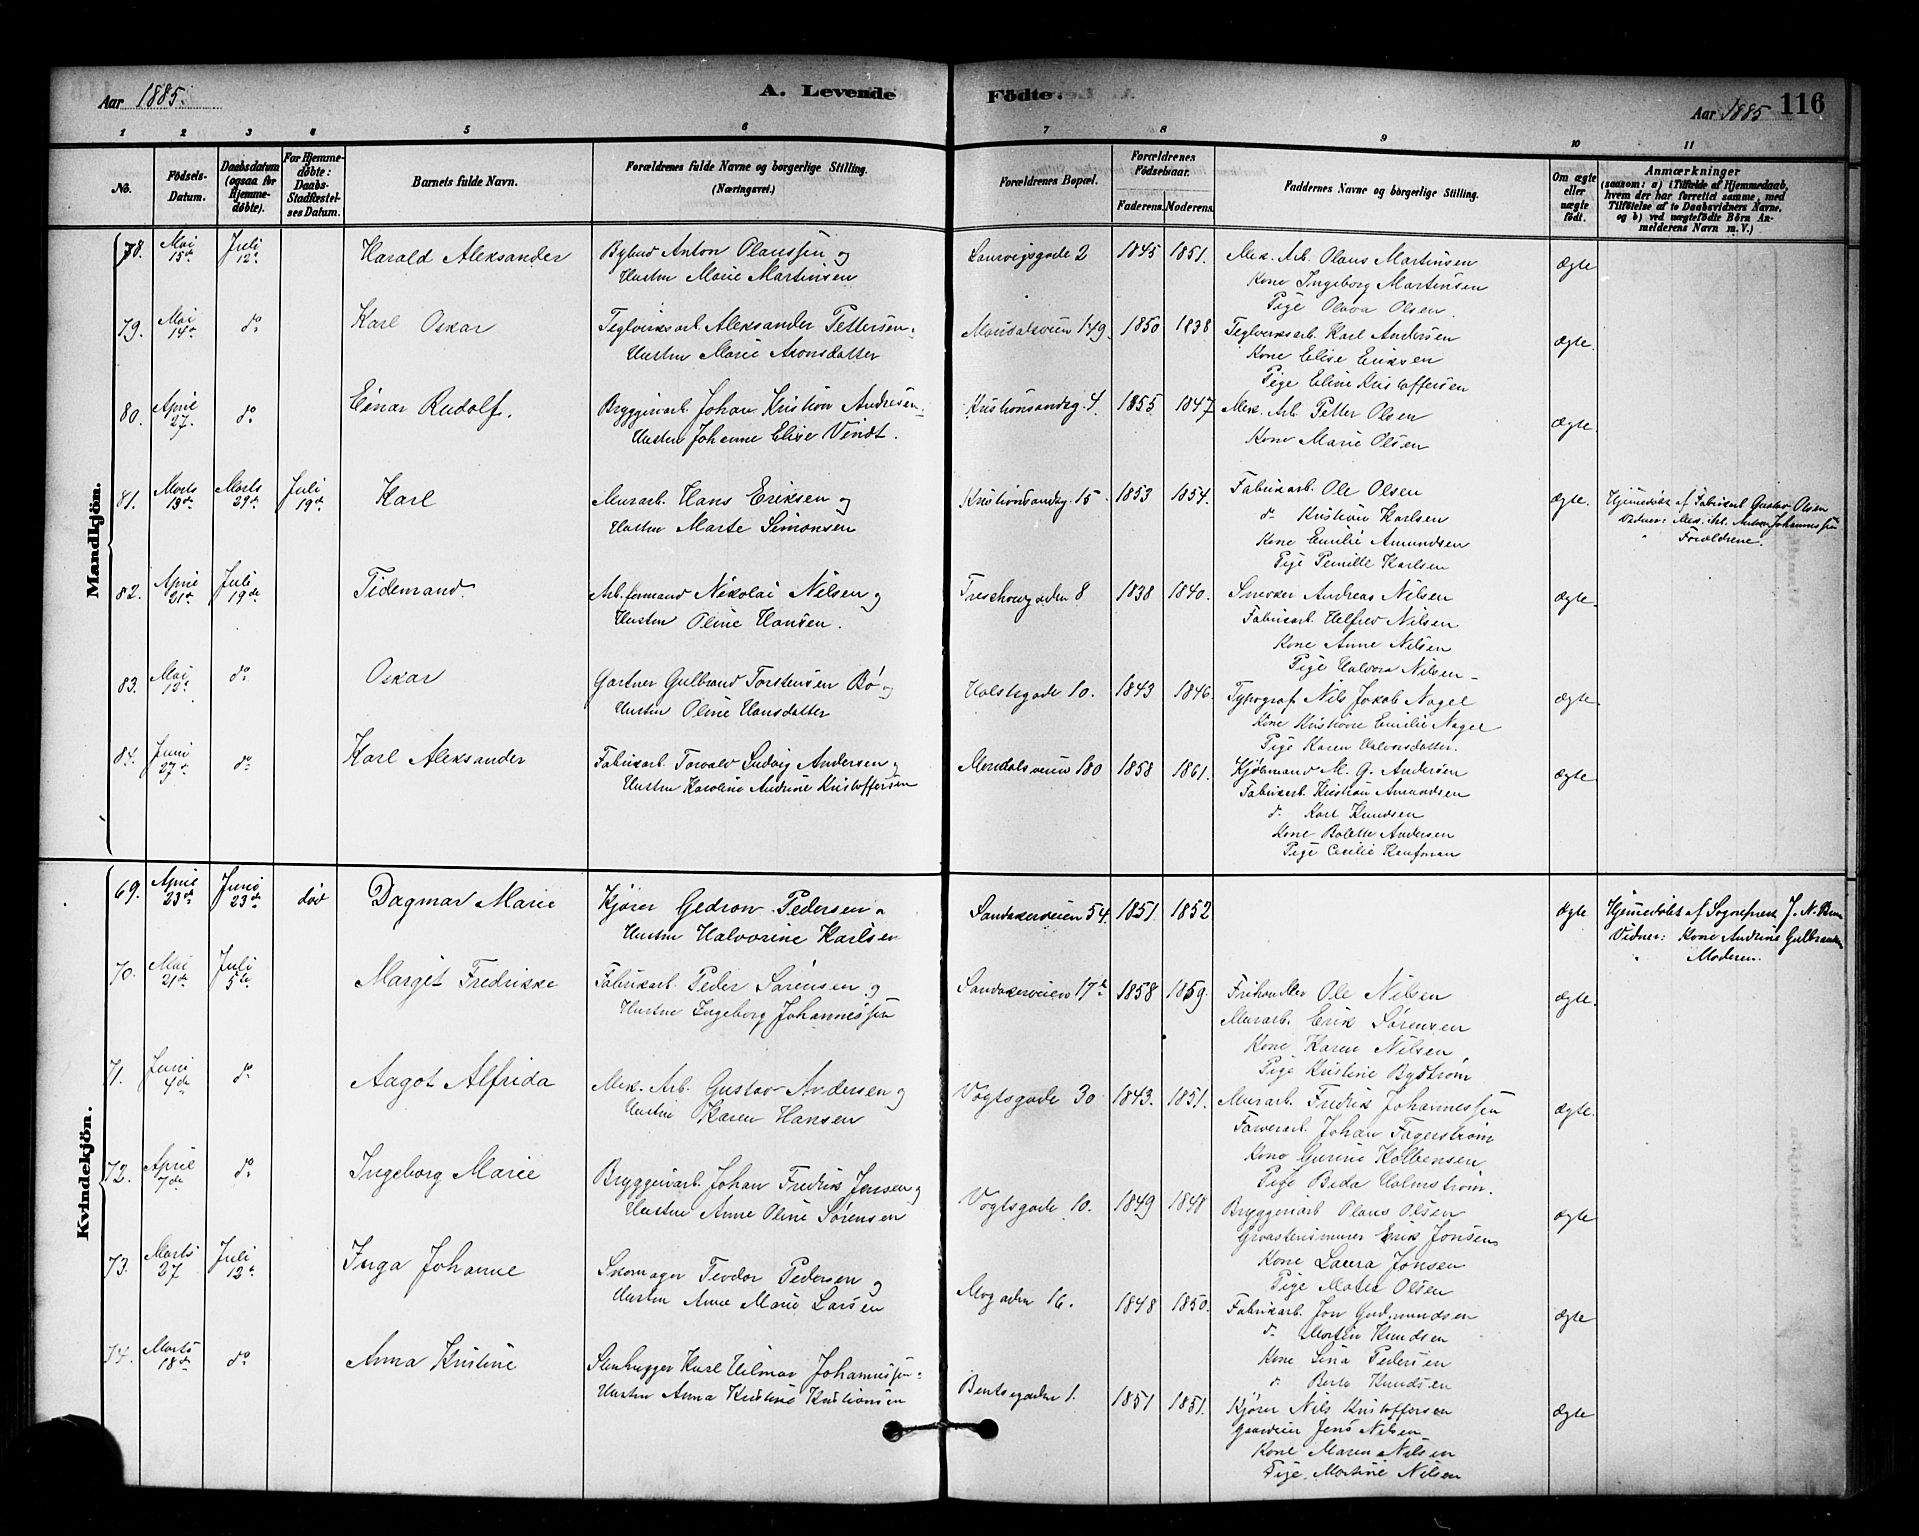 Aar 1885.
A. Levende
Födte.
Aar 1885
116
1 2 3 4 5 6 7 8 9 10 11
No.
Födsels-Datum.
Daabsdatum (ogsaa for Hjemme-döbte).
For Hjemme-döbte: Daabs-Stadfæstel-ses Datum.
Barnets fulde Navn.
Forældrenes fulde Navne og borgerlige Stilling.
(Næringsvei.)
Forældrenes Bopæl.
Forældrenes Födselsaar.
Faderens. Moderens.
Faddernes Navne og borgerlige Stilling.
Om ægte eller uægte födt.
Anmærkninger
(saasom: a) i Tilfælde af Hjemmedaab,
hvem der har forrettet samme, med
Tilföielse af to Daabsvidners Navne,
og b) ved uægtefödte Börn An-
melderens Navn m. V.)
Mandkjön.
78. Mai 15de Juli 12te Harald Aleksander Bybud Anton Olaussen og Laurvigsgade 2 1845 1851. Mek. Arb. Olaus Martinsen Ægte
Hustru Marie Martinsen Kone Ingeborg Martinsen
Pige Olava Olsen.
79. Mai 14de do Karl Oskar Teglverksarb. Aleksander Pettersen Maridalsveien 149 1850 1838 Teglverksarb. Karl Andersen Ægte.
Hustru Marie Aronsdatter Kone Elise Eriksen
Pige Eline Kristoffersen
80. April 27. do Einar Rudolf. Bryggeriarb. Johan Kristian Andresen Kristiansandsg. 4. 1855 1847 Mek. Arb. Petter Olsen Ægte
Hustru Johanne Elise Vindt. Kone Marie Olsen
81. Marts 13de Marts 29de Juli 19de Karl Murarb. Hans Eriksen og Kristiansandsg. 15. 1853 1854. Fabrikarb. Ole Olsen Ægte. Hjemmedöbt af Fabrikarb. Gustav Olsen
Hustru Marte Simonsen do Kristian Karlsen Vidner: Mek. Arb. Anton Johannessen
Kone Emilie Amundsen " Forældrene.
Pige Pernille Karlsen
82. April 21de Juli 19de Tidemand Arb.formand Nikolai Nilsen og Treschowsgaden 8 1838 1840. Smed Andreas Nilsen Ægte.
Hustru Oline Hansen. Fabrikarb. Helfred Nilsen
Kone Anne Nilsen
Pige Halvora Nilsen
83. Mai 12te do Oskar Gartner Gulbrand Torstensen Bø og Holstsgade 10. 1843 1846. Typograf Nils Jakob Nagel Ægte
Hustru Oline Hansdatter Kone Kristine Emilie Nagel
Pige Karen Halvorsdatter.
84. Juni 27de do Karl Aleksander Fabrikarb. Torvald Ludvig Andersen og Maridalsveien 180 1858 1861. Kjöbmand M. G. Andersen Ægte
Hustru Karoline Andrine Kristoffersen Fabrikarb. Kristian Amundsen
do Karl Knudsen
Kone Bolette Andersen
Pige Cecilie Kaufman
Kvindekjön.
69. April 23de Juni 23de död Dagmar Marie Kjører Gedion Pedersen og Sandakerveien 54 1851. 1852 Ægte Hjemmedöbt af Sogneprest J. N. Bruun
Hustru Halvorine Karlsen Vidner: Kone Andrine Gulbrandsen
" Moderen.
70. Mai 21de Juli 5te Marget Fredrikke Fabrikarb. Peder Sørensen og Sandakerveien 17b 1858 1859. Frihandler Ole Nilsen Ægte.
Hustru Ingeborg Johannessen Murarb. Erik Sørensen
Kone Karen Nilsen
Pige Kristine Bydstrøm
71. Juni 4de do Aagot Alfrida Mek. Arb. Gustav Andersen og Vogtsgade 30 1843. 1851. Murarb. Fredrik Johannessen Ægte.
Hustru Karen Hansen Farverarb. Johan Fagerstrøm
Kone Gurine Kolbensen
Pige Beda Holmstrøm.
72. April 7de do Ingeborg Marie Bryggeriarb. Johan Fredrik Jensen og Vogtsgade 10. 1849 1848 Bryggeriarb Olaus Olsen Ægte
Hustru Anne Oline Sørensen Graastensmurer Erik Jonsen
Kone Laura Jonsen
Pige Matea Olsen
73. Marts 27 Juli 12te Inga Johanne Skomager Teodor Pedersen og Mogaden 16. 1848 1850. Fabrikarb. Jon Gudmundsen Ægte
Hustru Anne Marie Larsen do Martin Knudsen
Kone Lina Pedersen
do Berte Knudsen
74. Marts 18de do Anna Kristine Stenhugger Karl Hilmar Johannessen Bentsegaden 1. 1851 1851. Kjører Nils Kristoffersen Ægte
Hustru Anna Kristine Kristiansen Gaardeier Jens Nilsen
Kone Maren Nilsen
Pige Martine Nilsen